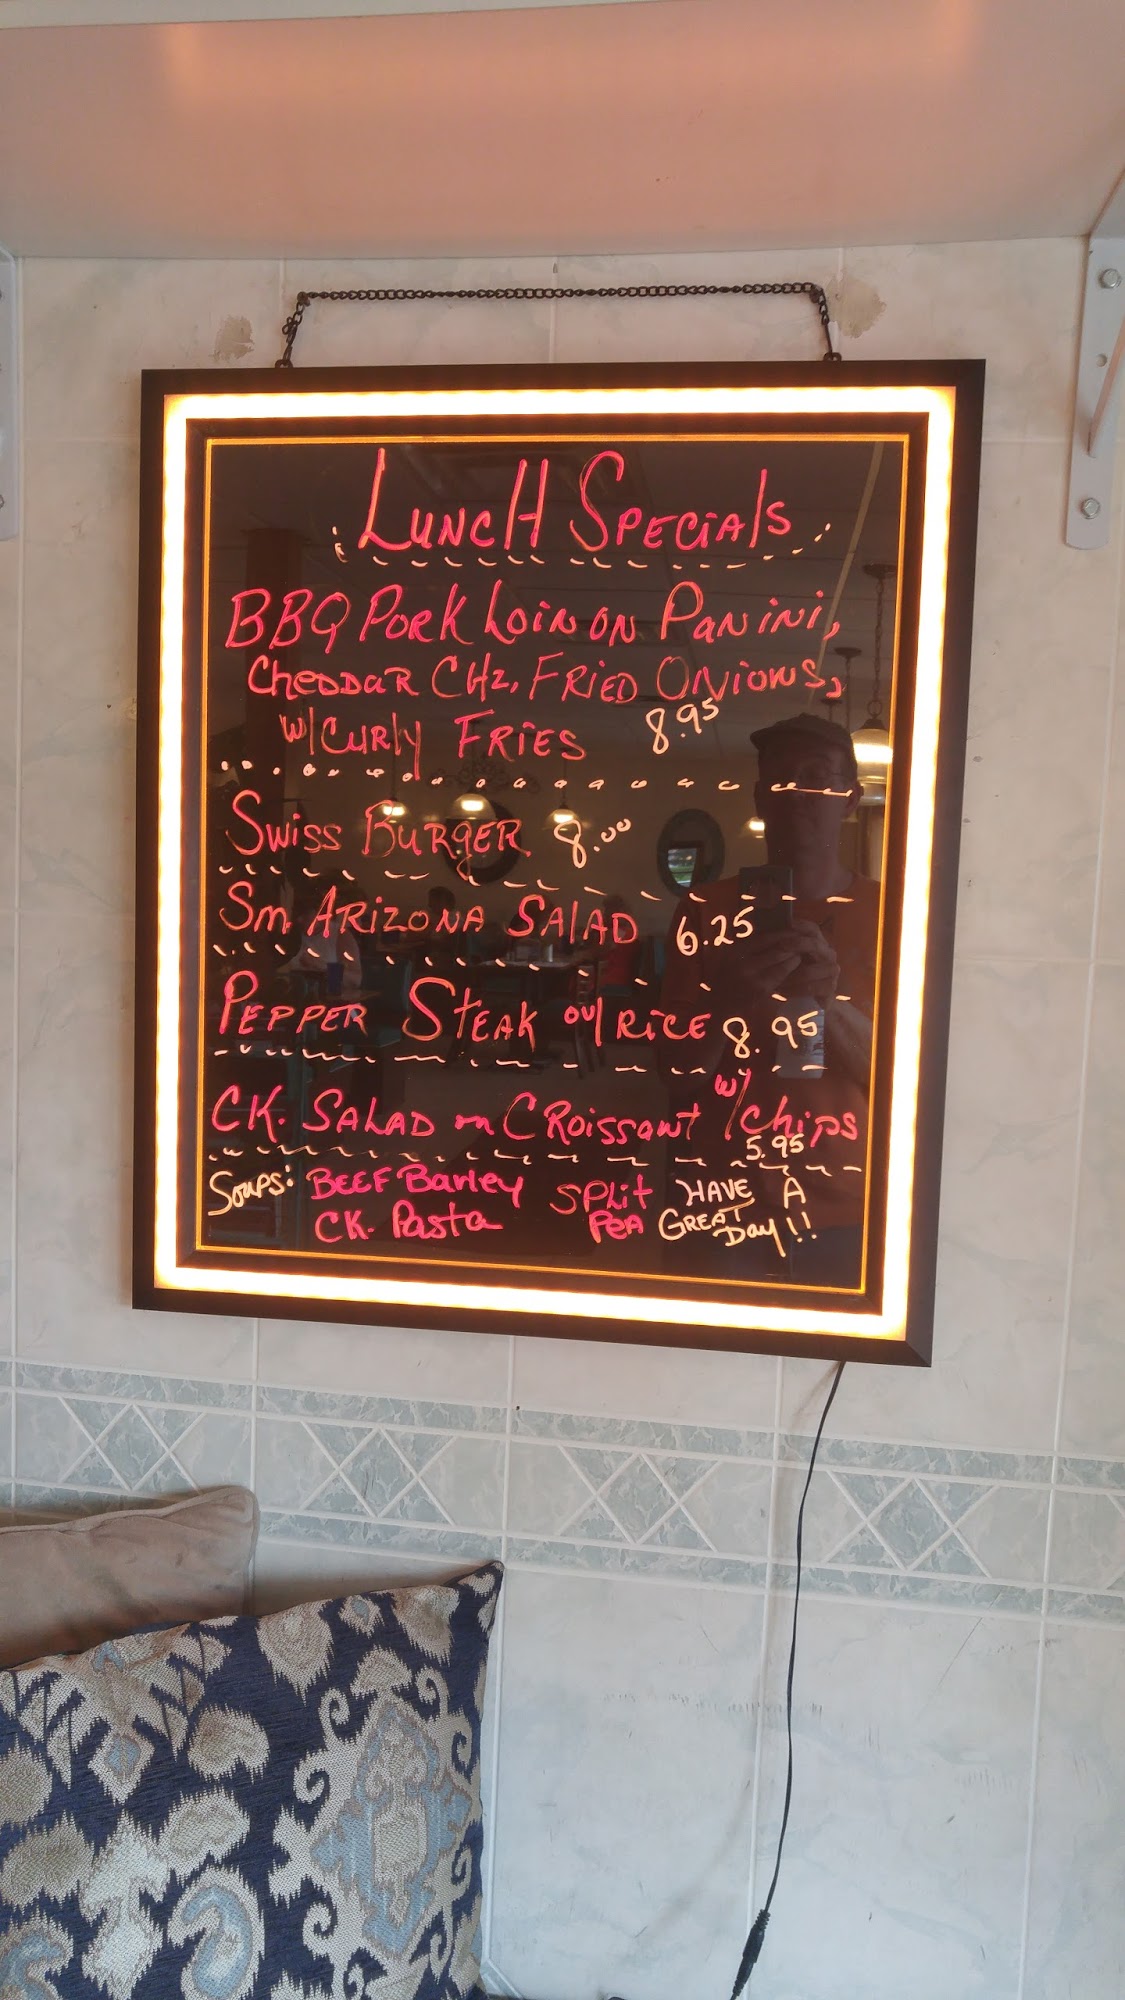 Lunch Specials
BBQ Pork Loin on Panini,
Cheddar Chz, Fried Onions,
w/ Curly Fries 8.95
Swiss Burger 8.00
Sm. Arizona Salad 6.25
Pepper Steak ov/ Rice 8.95
Ck. Salad on Croissant w/ Chips
5.95
Soups: Beef Barley Split Have A
Ck. Pasta Pea Great Day!!